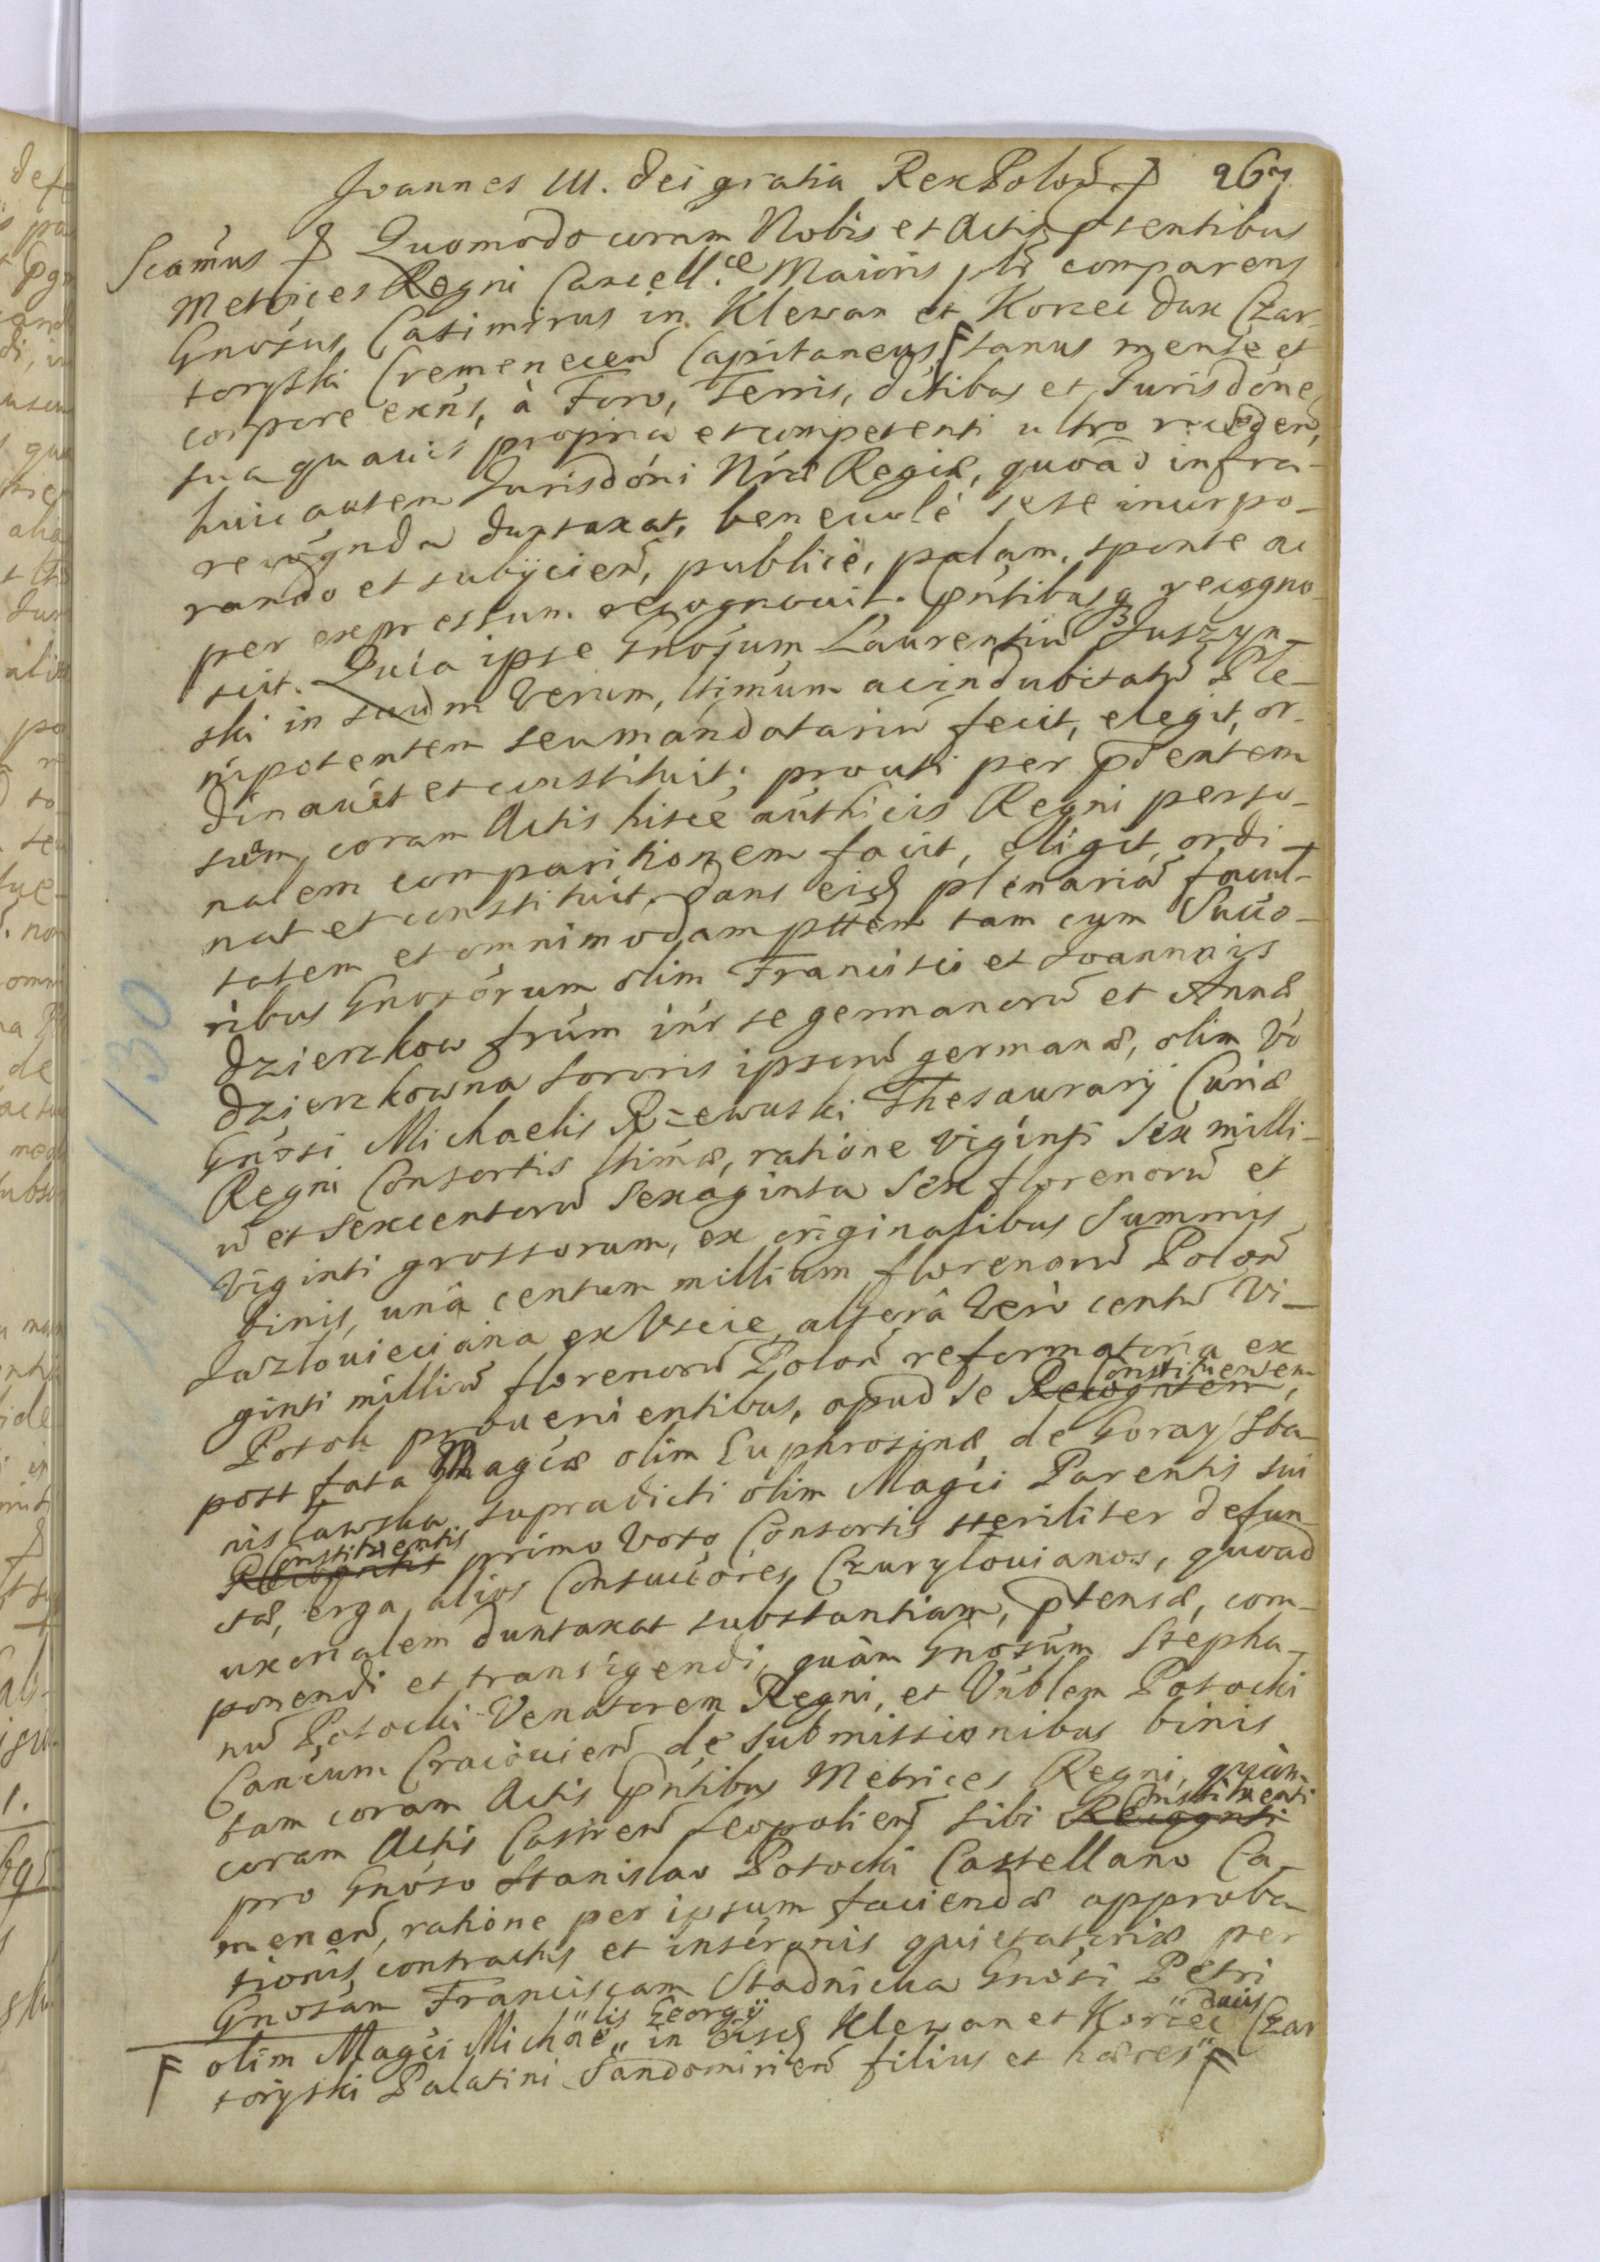 Joannes III. Dei gratia Rex Poloñ. 267
Scamus Quomodo coram Nobis et Actis p̃sentibus
Metrices Regni Cancell.ce Maioris plr comparens
Gnosus Casimirus in Klewan et Korzec dux Czar-
toryski Cremeneceñ Capitaneus, F sanus mente et
corpore exñs, à Foro, Terris, dctibus et Jurisdóne
sua quavis propria et competenti ultro receden,
huic autem Jurisdóni Nrae Regiae, quoad infra-
recognda duntaxat, benevolè sese incorpo-
rando et subijcieñ, publicè, palam, sponte ac
per expressum recognovit. Pñtibusq recogno-
scit. Quia ipse Gnosum Laurentiũ Juszyn-
ski in suum Verum, ltimum ac indubitatũ Ple-
nipotentem seu mandatariũ fecit, elegit, or-
dinavit et constituit; prouti per p̃sentem
suam coram Actis hisce authcis Regni perso-
nalem comparitionem facit, eligit, ordi-
nat et constituit, dans eid plenariã facul-
tatem et omnimodam pttem tam cum Succo-
ribus Gnosorum olim Francisci et Joannnis
Dzierzkow frum inr se germanorũ et Annae
Dzierzkowna sororis ipsorũ germanae, olim Vo
Gnosi Michaelis Rzewuski Thesaurarij Curiae
Regni Consortis ltimae, ratione viginti sex milli-
ũ et sexcentorũ sexaginta sex florenorũ et
Viginti grossorum, ex originalibus Summis
binis, unâ centum millium florenorũ Poloñ
Jazlovieciana ex Uscie, alterâ verò centũ Vi-
ginti milliũ florenorũ Poloñ reformatoria ex
Potok provenientibus, apud se Recogntem Constituentem,
post fata Magcae olim Euphrosinae de Goray Sta-
nislawska supradicti olim Magci Parentis sui
Recogntis Constituentis primo voto Consortis steriliter defun-
ctae, erga alios Consuccores Czurylovianos, quoad
uxorialem duntaxat substantiam, p̃tensae, com-
ponendi et transigendi, quàm Gnosum Stepha-
nũ Potocki Venatorem Regni, et Vnblem Potocki
Cancum Cracovieñ de submissionibus binis
tam coram Actis p̃ntibus Metrices Regni, quàm
coram Actis Castreñ Leopolieñ sibi Recognti Constituenti
pro Gnoso Stanislao Potocki Castellano Ca-
meneñ, ratione per ipsum faciendae approba-
tionis contractus et inscronis quietatoriae per
Gnosam Franciscam Stadnicka Gnosi Petri
F olim Magci Michaelis Georgij in eisd Klewan et Korzec ducis Czar
toryski Palatini Sandomirieñ filius et haeres F